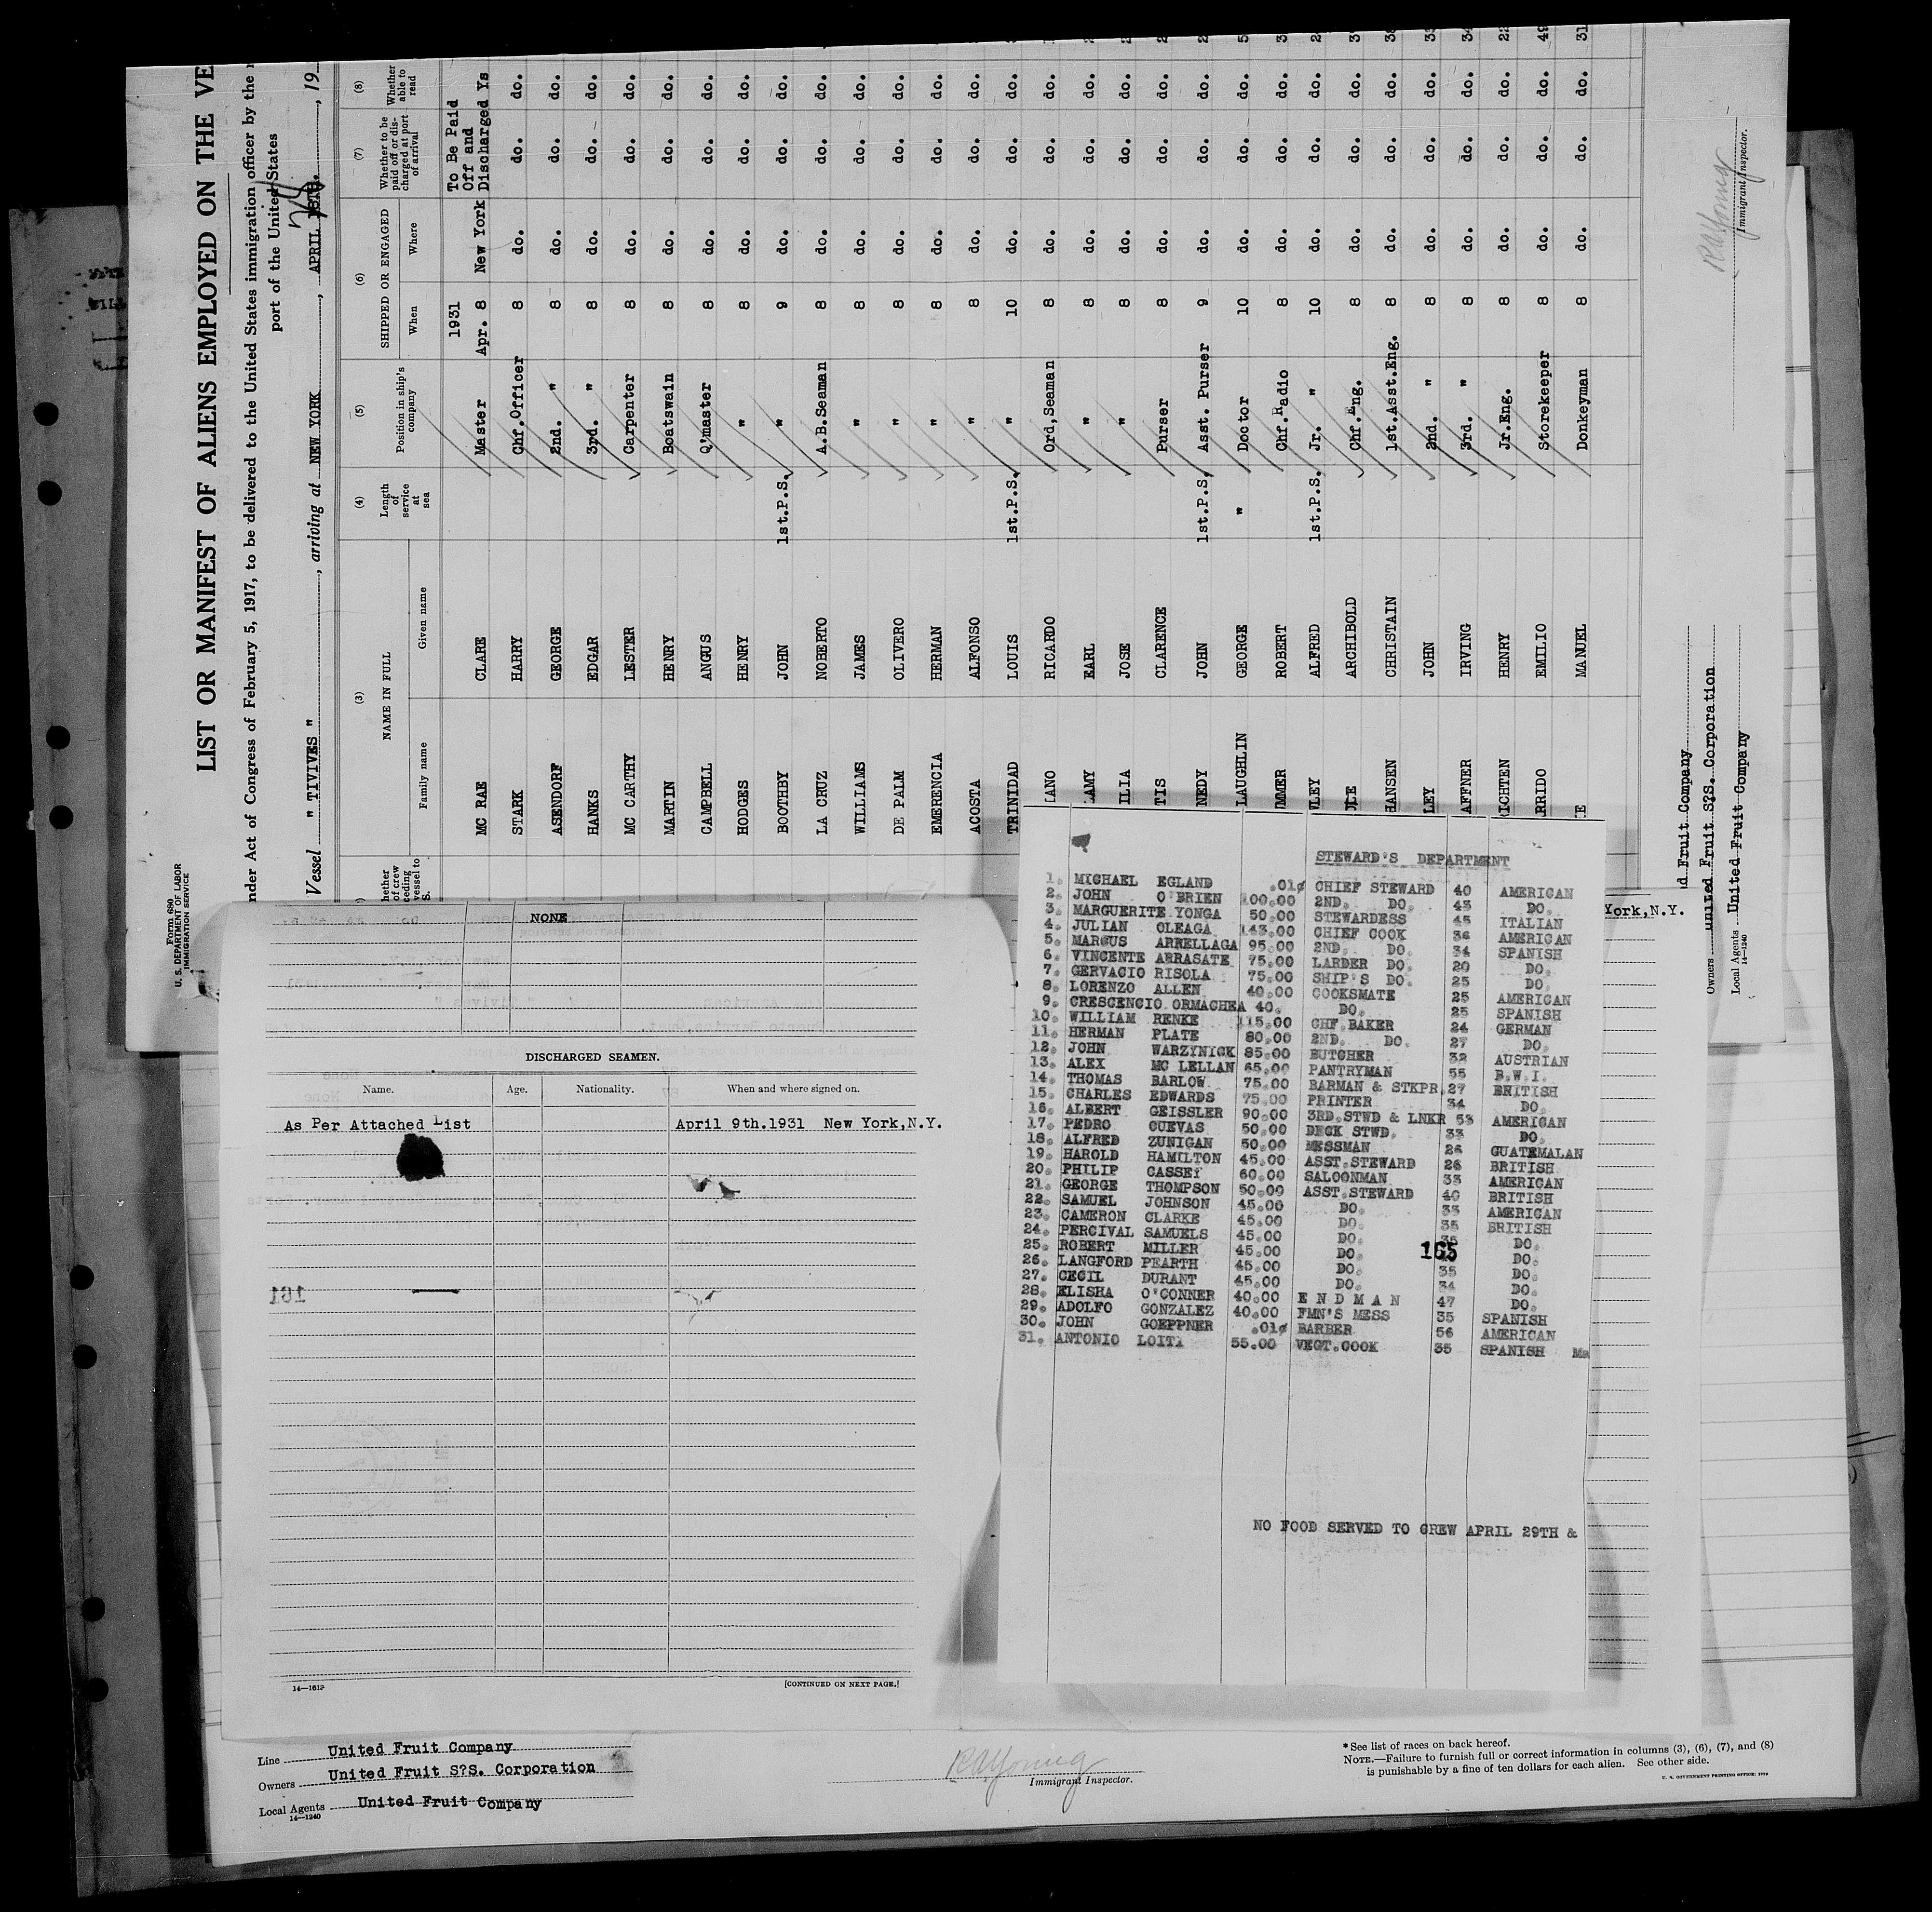 Form 680
U. S. DEPARTMENT OF LABOR
IMMIGRATION SERVICE
LIST OR MANIFEST OF ALIENS EMPLOYED ON THE VE
nder Act of Congress of February 5, 1917, to be delivered to the United States immigration officer by the
port of the United States
Vessel " TIVIVES " , arriving at NEW YORK , APRIL , 19
(3) (4) (5) (6) (7) (8)
NAME IN FULL
Family name Given name
Length of service at sea
Position in ship's company
SHIPPED OR ENGAGED
When Where
Whether to be paid off or discharged at port of arrival
Whether able to read
1931 To Be Paid Off and
MC RAE CLARE Master Apr. 8 New York Discharged Ys
STARK HARRY Chf.Officer 8 do. do. do.
ASENDORF GEORGE 2nd. " 8 do. do. do.
HANKS EDGAR 3rd. " 8 do. do. do.
MC CARTHY LESTER Carpenter 8 do. do. do.
MARTIN HENRY Boatswain 8 do. do. do.
CAMPBELL ANGUS Q'master 8 do. do. do.
HODGES HENRY " 8 do. do. do.
BOOTHBY JOHN 1st.P.S. " 9 do. do. do.
LA CRUZ NOBERTO A.B.Seaman 8 do. do. do.
WILLIAMS JAMES " 8 do. do. do.
DE PALM OLIVERO " 8 do. do. do.
EMERENCIA HERMAN " 8 do. do. do.
ACOSTA ALFONSO " 8 do. do. do.
TRINIDAD LOUIS 1st.P.S. " 10 do. do. do.
IANO RICARDO Ord,Seaman 8 do. do. do.
LAMY EARL " 8 do. do. do.
ILIA JOSE " 8 do. do. do.
TIS CLARENCE Purser 8 do. do. do.
NEDY JOHN 1st.P.S. Asst. Purser 9 do. do. do.
LAUGHLIN GEORGE " Doctor 10 do. do. do. 5
MMER ROBERT Chf.Radio 8 do. do. do. 3
LEY ALFRED 1st.P.S. Jr. " 10 do. do. do.
ARCHIBOLD Chf.Eng. 8 do. do. do.
HANSEN CHRISTAIN 1st.Asst.Eng. 8 do. do. do.
LEY JOHN 2nd. " 8 do. do. do.
AFFNER IRVING 3rd. " 8 do. do. do.
ICHTEN HENRY Jr.Eng. 8 do. do. do.
RRIDO EMILIO Storekeeper 8 do. do. do.
E MANUEL Donkeyman 8 do. do. do. 31
d Fruit Company
Owners United Fruit S?S. Corporation
Local Agents United Fruit Company
14—1240
RAYoung
Immigrant Inspector.
York,N.Y.
NONE
DISCHARGED SEAMEN.
Name. Age. Nationality. When and where signed on.
As Per Attached List April 9th.1931 New York,N.Y.
161
14—1613
[CONTINUED ON NEXT PAGE.]
STEWARD'S DEPARTMENT
1. MICHAEL EGLAND .01¢ CHIEF STEWARD 40 AMERICAN
2. JOHN O'BRIEN 100.00 2ND. DO. 43 DO.
3. MARGUERITE YONGA 50.00 STEWARDESS 45 ITALIAN
4. JULIAN OLEAGA 143.00 CHIEF COOK 36 AMERICAN
5. MARCUS ARRELLAGA 95.00 2ND. DO. 34 SPANISH
6. VINCENTE ARRASATE 75.00 LARDER DO. 20 DO.
7. GERVACIO RISOLA 75.00 SHIP'S DO. 25 DO.
8. LORENZO ALLEN 40.00 COOKSMATE 25 AMERICAN
9. CRESCENCIO ORMACHEA 40. DO. 25 SPANISH
10. WILLIAM RENKE 115.00 CHF.BAKER 24 GERMAN
11. HERMAN PLATE 80.00 2ND. DO. 27 DO.
12. JOHN WARZYNICK 85.00 BUTCHER 32 AUSTRIAN
13. ALEX MC LELLAN 65.00 PANTRYMAN 55 B.W.I.
14. THOMAS BARLOW 75.00 BARMAN & STKPR. 27 BRITISH
15. CHARLES EDWARDS 75.00 PRINTER 34 DO.
16. ALBERT GEISSLER 90.00 3RD.STWD & LNKR 53 AMERICAN
17. PEDRO CUEVAS 50.00 DECK STWD. 33 DO.
18. ALFRED ZUNIGAN 50.00 MESSMAN 26 GUATEMALAN
19. HAROLD HAMILTON 45.00 ASST.STEWARD 26 BRITISH
20. PHILIP CASSEY 60.00 SALOONMAN 33 AMERICAN
21. GEORGE THOMPSON 50.00 ASST.STEWARD 40 BRITISH
22. SAMUEL JOHNSON 45.00 DO. 33 AMERICAN
23. CAMERON CLARKE 45.00 DO. 35 BRITISH
24. PERCIVAL SAMUELS 45.00 DO. DO.
25. ROBERT MILLER 45.00 DO. DO.
165
26. LANGFORD PEARTH 45.00 DO. 35 DO.
27. CECIL DURANT 45.00 DO. 34 DO.
28. ELISHA O'CONNER 40.00 E N D M A N 47 DO.
29. ADOLFO GONZALEZ 40.00 FMN'S MESS 35 SPANISH
30. JOHN GOEPPNER .01¢ BARBER 56 AMERICAN
31. ANTONIO LOITI 55.00 VEGT.COOK 35 SPANISH
NO FOOD SERVED TO CREW APRIL 29TH &
Line United Fruit Company
Owners United Fruit S?S. Corporation
Local Agents United Fruit Company
14—1240
RAYoung
Immigrant Inspector.
* See list of races on back hereof.
NOTE.—Failure to furnish full or correct information in columns (3), (6), (7), and (8)
is punishable by a fine of ten dollars for each alien. See other side.